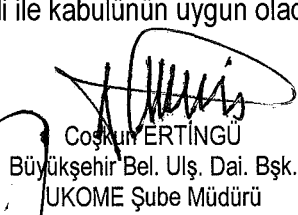 li ile kabulünün uygun olac
Coşkun ERTİNGÜ
Büyükşehir Bel. Ulş. Dai. Bşk.
UKOME Şube Müdürü